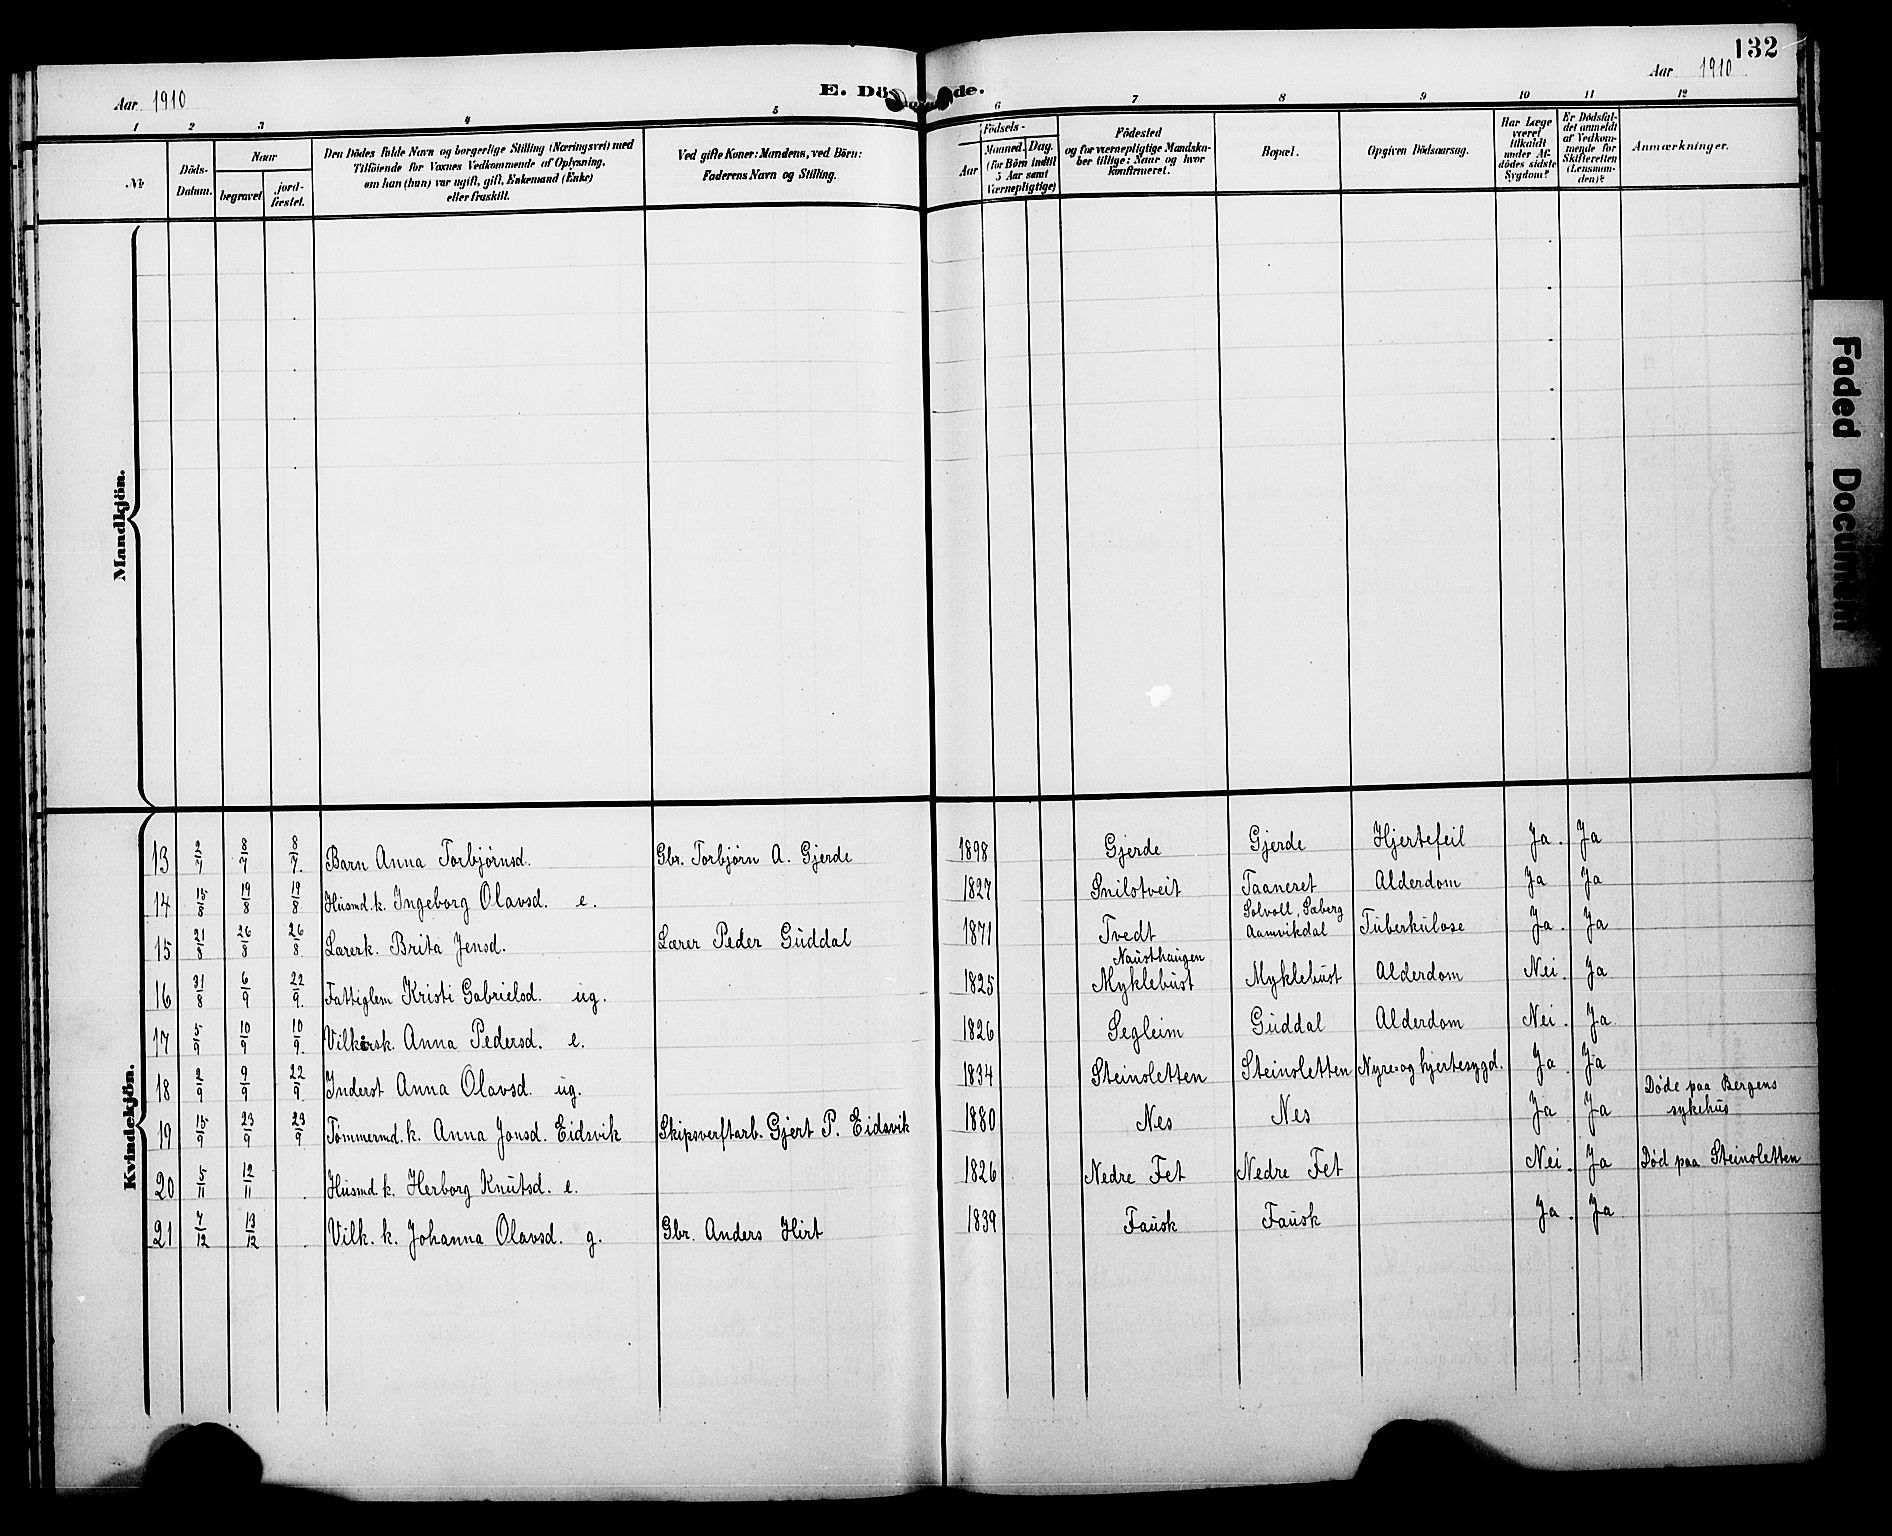 132
Aar 1910
E. Dö de.
Aar 1910
1 2 3 4 5 6 7 8 9 10 11 12
Nr
Döds-
Datum.
Naar
begravet
jord-
fæstet.
Den Dödes fulde Navn og borgerlige Stilling (Næringsvei) med
Tilföiende for Voxnes Vedkommende af Oplysning,
om han (hun) var ugift, gift, Enkemand (Enke)
eller fraskilt.
Ved gifte Koner: Mandens, ved Börn:
Faderens Navn og Stilling.
Födsels-
Aar
Maaned. Dag.
(for Börn indtil
5 Aar samt
Værnepligtige)
Födested
og for værnepligtige Mandska-
ber tillige: Naar og hvor
konfirmeret.
Bopæl.
Opgiven Dödsaarsag.
Har Læge
været
tilkaldt
under Af-
dödes sidste
Sygdom?
Er Dödsfal-
det anmeldt
af Vedkom-
mende for
Skifteretten
(Lensman-
den)?
Anmærkninger.
Mandkjön.
Kvindekjön.
13 2/7 8/7 8/7. Barn Anna Torbjørnsd. Gbr. Torbjørn A. Gjerde 1898 Gjerde Gjerde Hjertefeil Ja. Ja
14 15/8 19/8 19/8 Husmd. k. Ingeborg Olavsd. e. 1827 Snilstveit Taaneret Alderdom Ja Ja
15 21/8 26/8 26/8 Lærerk. Brita Jensd. Lærer Peder Guddal 1871 Tvedt Solvoll, Sæberg
Aamvikdal Tuberkulose Ja. Ja
16 31/8 6/9 22/9. Fattiglem Kristi Gabrielsd. ug. 1825 Nausthaugen
Myklebust Myklebust Alderdom Nei. Ja
17 5/9 10/9 10/9. Vilkårsk. Anna Pedersd. e. 1826 Segleim Guddal Alderdom Nei. Ja
18 2/9 9/9 22/9 Inderst Anna Olavsd. ug. 1834 Steinsletten Steinsletten Nyre- og hjertesygd. Ja. Ja
19 15/9 23/9 23/9 Tømmermd. k. Anna Jonsd. Eidsvik Skipsverftarb. Gjert P. Eidsvik 1880 Nes Nes Ja. Ja Døde paa Bergens
sykehus
20 5/11 12/11 Husmd. k. Herborg Knutsd. e. 1826 Nedre Fet Nedre Fet Nei. Ja Død paa Steinsletten
21 7/12 13/12 Vilk. k. Johanna Olavsd. g. Gbr. Anders Hirt 1839 Fausk Fausk Ja. Ja
Faded Document